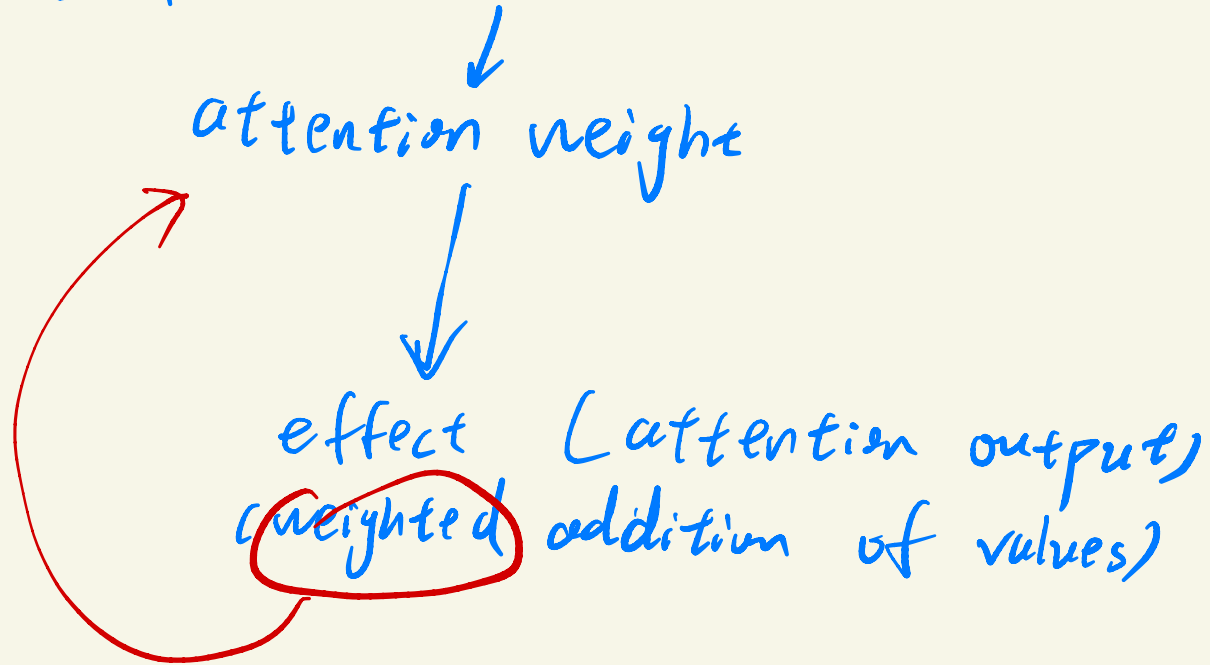 attention weight
effect (attention output)
(weighted addition of values)